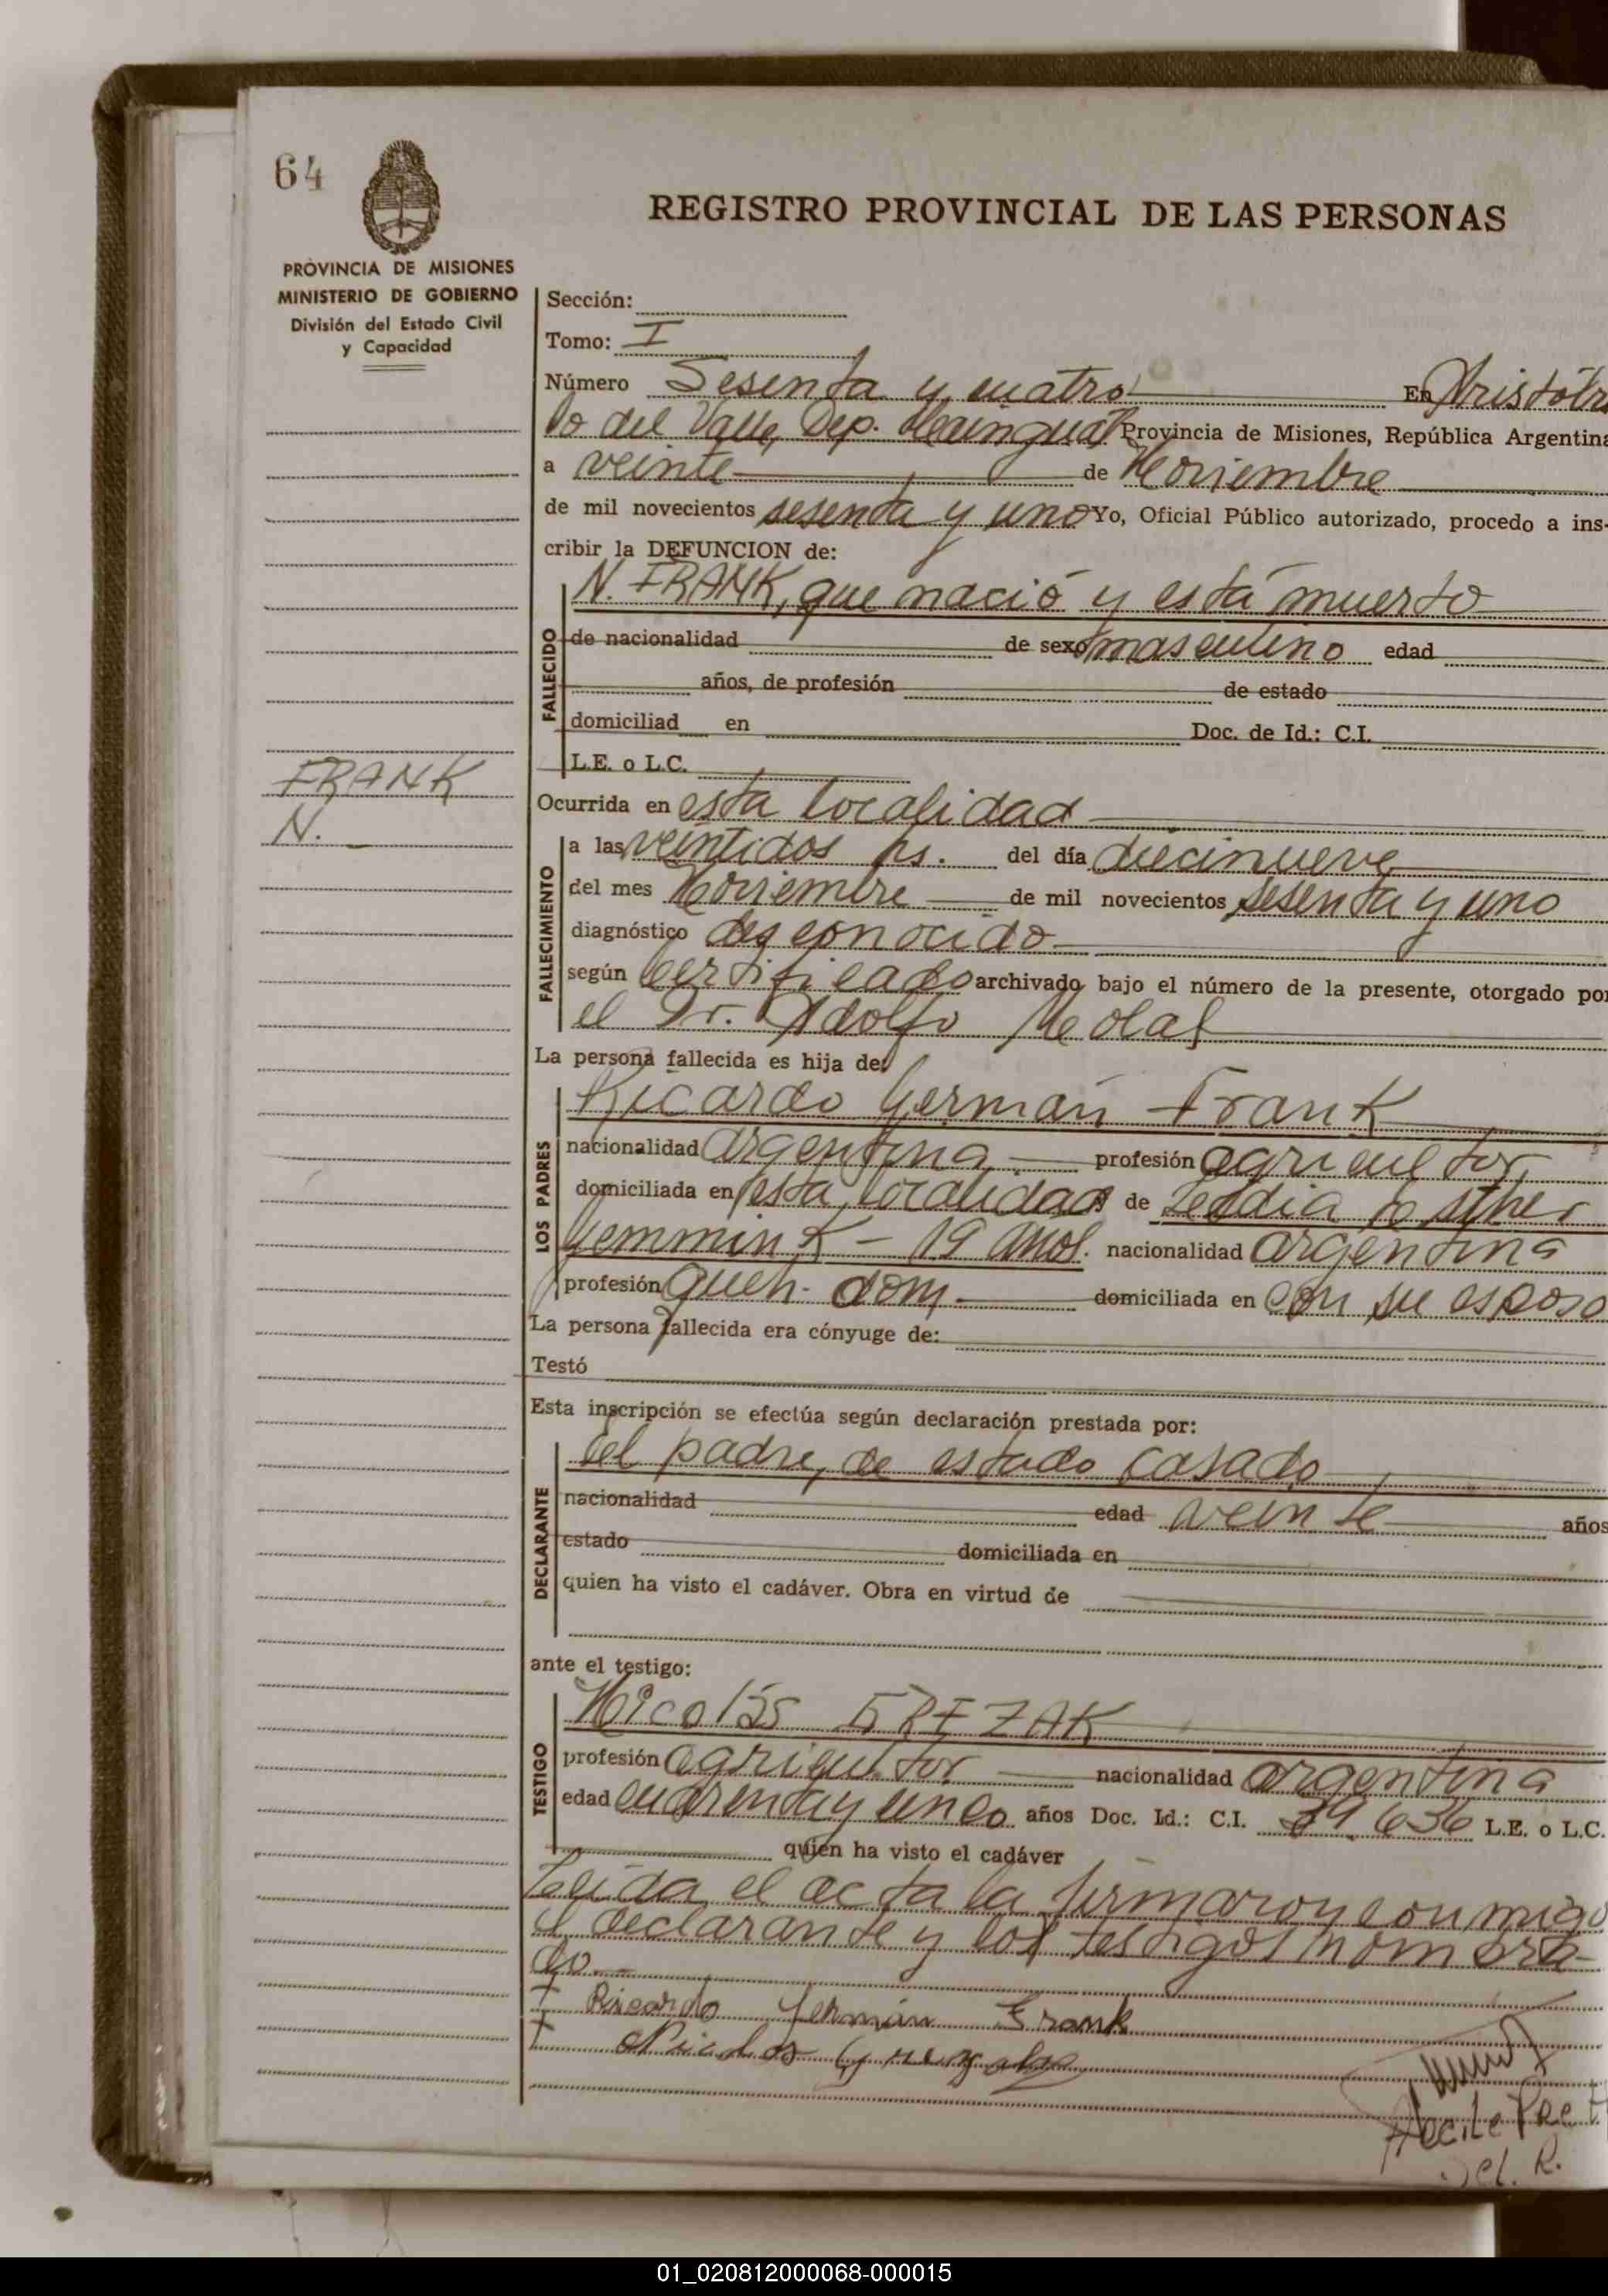 64
REGISTRO PROVINCIAL DE LAS PERSONAS
PROVINCIA DE MISIONES
MINISTERIO DE GOBIERNO
División del Estado Civil
y Capacidad
Sección:
Tomo: I
Número Sesenta y cuatro En Aristóbu
lo del Valle, Dep. Cainguás Provincia de Misiones, República Argentina
a veinte de Noviembre
de mil novecientos sesenta y uno Yo, Oficial Público autorizado, procedo a ins-
cribir la DEFUNCION de:
N. FRANK, que nació y está muerto
FALLECIDO
de nacionalidad de sexo masculino edad
años, de profesión de estado
domiciliad en Doc. de Id.: C.I.
L.E. o L.C.
FRANK
N.
Ocurrida en esta localidad
FALLECIMIENTO
a las veintidos hs. del día diecinueve
del mes Noviembre de mil novecientos sesenta y uno
diagnóstico desconocido
según certificado archivado bajo el número de la presente, otorgado por
el Dr. Adolfo
La persona fallecida es hija de:
LOS PADRES
Ricardo Germán Frank
nacionalidad argentina profesión agricultor,
domiciliada en esta localidad de
19 años. nacionalidad argentina
profesión queh. dom. domiciliada en con su esposo
La persona fallecida era cónyuge de:
Testó
Esta inscripción se efectúa según declaración prestada por:
DECLARANTE
el padre, de estado casado
nacionalidad edad veinte años
estado domiciliada en
quien ha visto el cadáver. Obra en virtud de
ante el testigo:
TESTIGO
Nicolás
profesión agricultor nacionalidad argentina
edad años Doc. Id.: C.I. L.E. o L.C.
quien ha visto el cadáver
Leída el acta la firmaron conmigo
el declarante y los testigos nombra-
do.
Ricardo Germán Frank
Nicolas
01_020812000068-000015